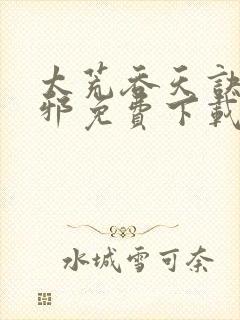 大荒吞天訣
邪免費下載
水城雪可奈